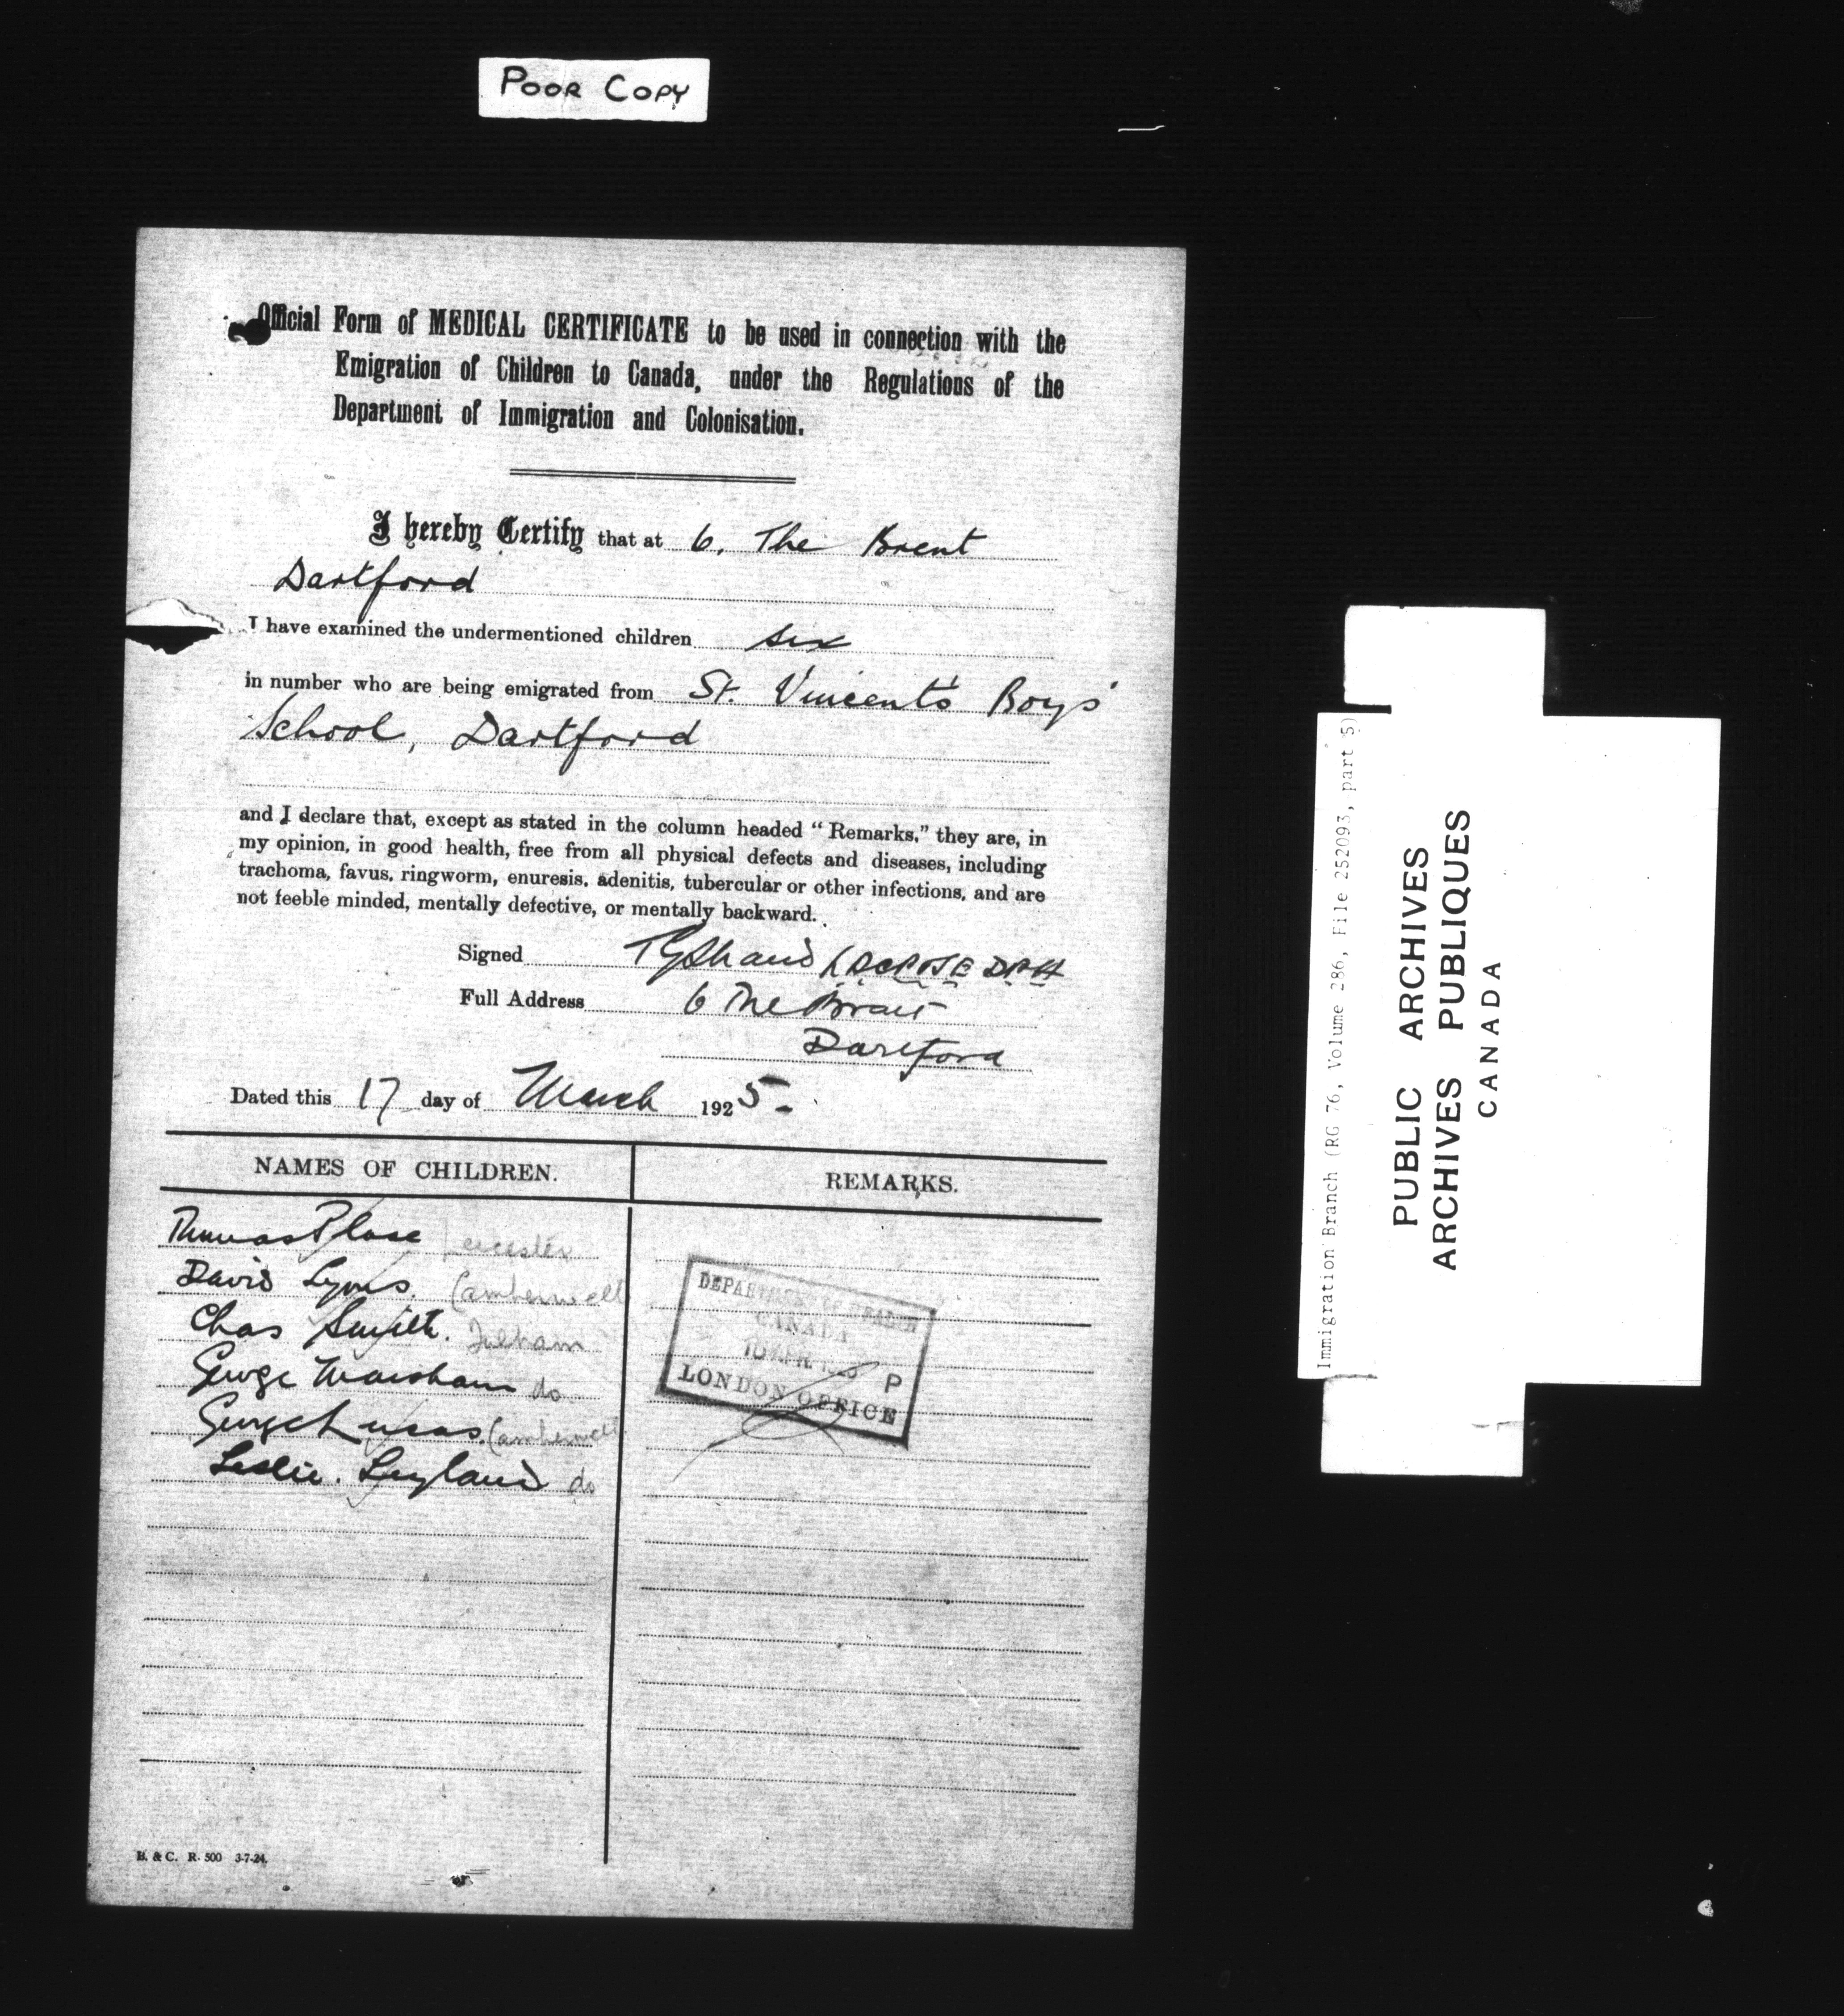 POOR COPY
Official Form of MEDICAL CERTIFICATE to be used in connection with the
Emigration of Children to Canada, under the Regulations of the
Department of Immigration and Colonisation.
I hereby Certify that at 6, The Brent
Dartford
I have examined the undermentioned children six
in number who are being emigrated from St. Vincent's Boys'
School, Dartford
and I declare that, except as stated in the column headed "Remarks," they are, in
my opinion, in good health, free from all physical defects and diseases, including
trachoma, favus, ringworm, enuresis, adenitis, tubercular or other infections, and are
not feeble minded, mentally defective, or mentally backward.
Signed
Full Address 6 The Brent
Dartford
Dated this 17 day of March 1925-
NAMES OF CHILDREN. REMARKS.
Thomas Leicester
David Lyons. Camberwell
Chas Smith. Fulham
George do
George Lucas. Camberwell
Leslie. Leyland do
DEPARTMENT OF HEALTH
CANADA
P
LONDON OFFICE
B. & C. R. 500 3-7-24.
Immigration Branch (RG 76, Volume 286, File 252093, part 5)
PUBLIC ARCHIVES
ARCHIVES PUBLIQUES
CANADA